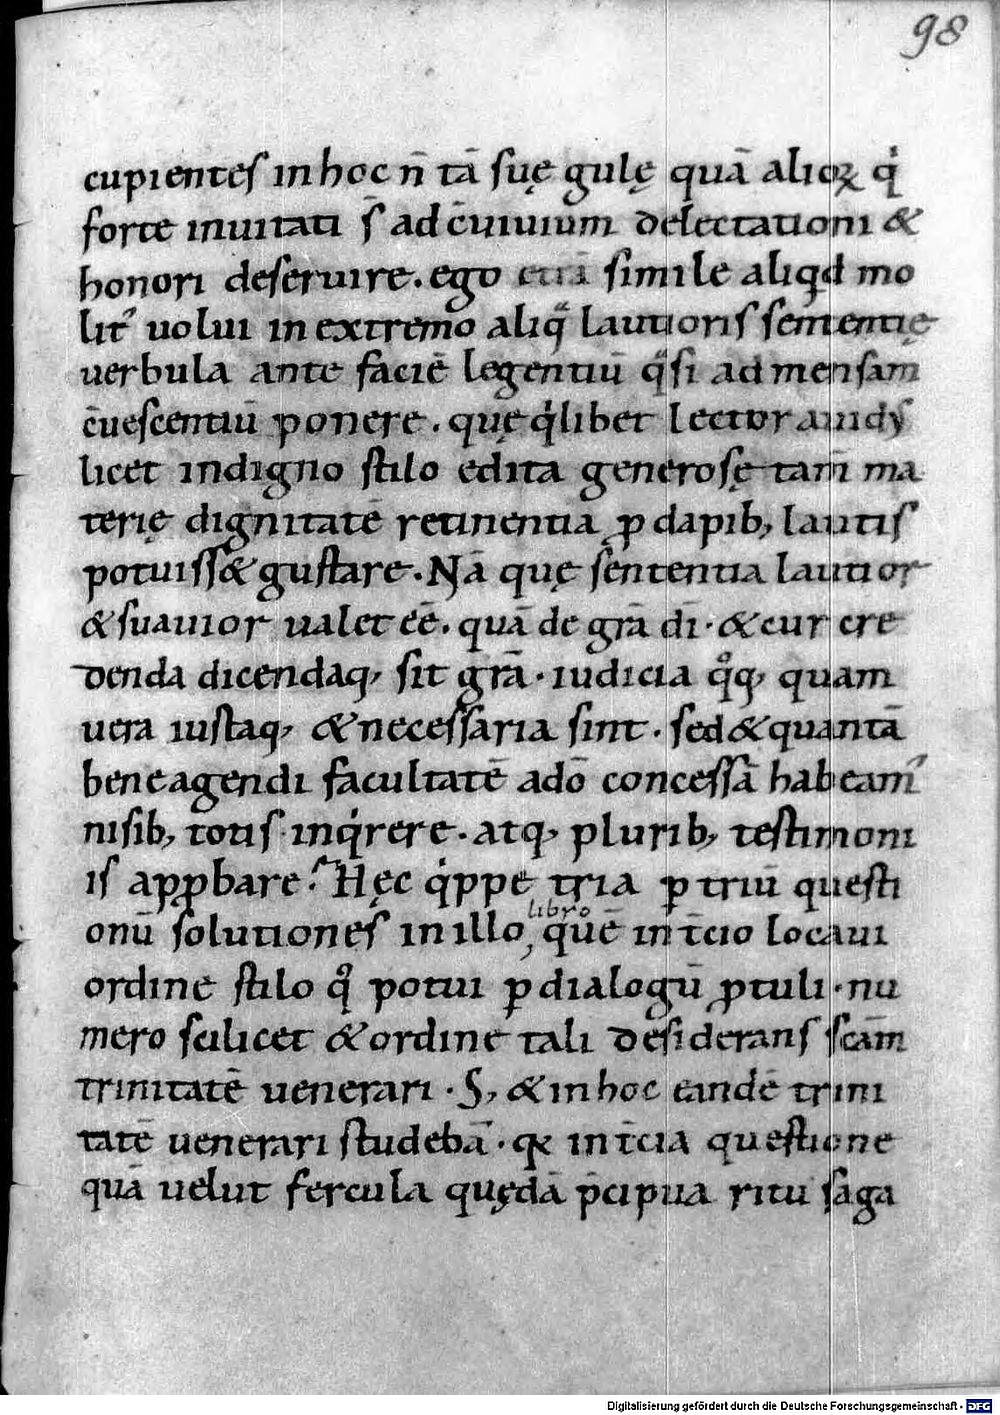 98
cupientes in hoc n̄ tā suę gulę quā alioꝝ q̇
forte inuitati s̄ ad c̄uiuium delectationi &
honori deseruire. ego simile aliqd mo
lit᷒ uolui in extremo aliqͣ lautioris sententię
uerbula ante faciē legentiū qͣsi ad mensam
c̄uescentiū ponere. quę q̇liber lector auidus
licet indigno stilo edita generosę tam̄ ma
terię dignitatē retinentia ꝓ dapib; lautis
potuiss& gustare. Nā quę sententia lautior
& suauior ualet eē. quā de grā dī. & cur cre
denda dicendaq; sit grā. iudicia qͦq; quam
uera iustaq; & necessaria sint. sed & quantā
bene agendi facultatē a dō concessā habeam᷒
nisib; totis inq̇rere. atq; plurib; testimoni
is apꝓbare? Hęc q̇ppe tria ꝑ triū questi
onū solutiones in illo, libro quē in t̄cio locaui
ordine stilo qͦ potui ꝑ dialogū ꝓtuli. nu
mero scilicet & ordine tali desiderans sc̄am
trinitatē uenerari. S; & in hoc eandē trini
tatē uenerari studebā. qꝛ in t̄cia questione
quā uelut fercula quędā p̄cipua ritu saga
Digitalisierung gefördert durch die Deutsche Forschungsgemeinschaft - DFG